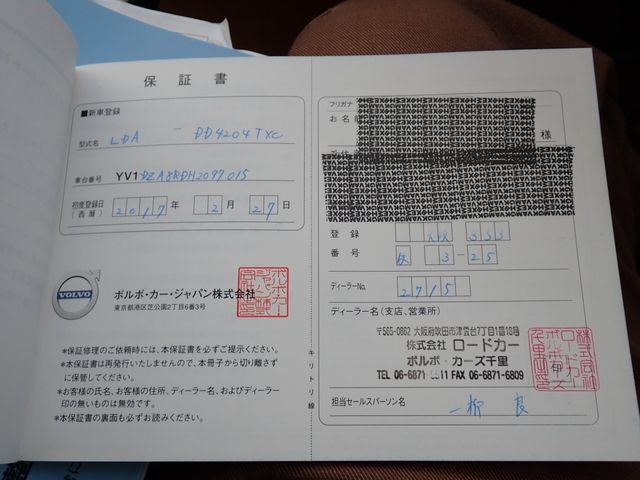 保証書
■新車登録
型式名 LDA - DD4204TXC
車台番号 YV1DZA8RDH2097015
初度登録日 2017年 2月 27日
(西暦)
VOLVO
ボルボ・カー・ジャパン株式会社
東京都港区芝公園2丁目6番3号
*保証修理のご依頼時には、本保証書を必ずご提示ください。
*本保証書は再発行いたしませんので、本冊子から切り離さずに保管してください。
*お客様の氏名、お客様の住所、ディーラー名、およびディーラー印の無いものは無効です。
*本保証書の裏面も必ずお読みください。
キリトリ線
フリガナ
お名前
様
登録 333
番号 3-25
ディーラーNo. 2715
ディーラー名(支店、営業所)
〒565-0862 大阪府吹田市津雲台7丁目1番18号
株式会社 ロードカー
ボルボ・カーズ千里
TEL 06-6871 FAX 06-6871-6809
担当セールスパーソン名
一柳 良